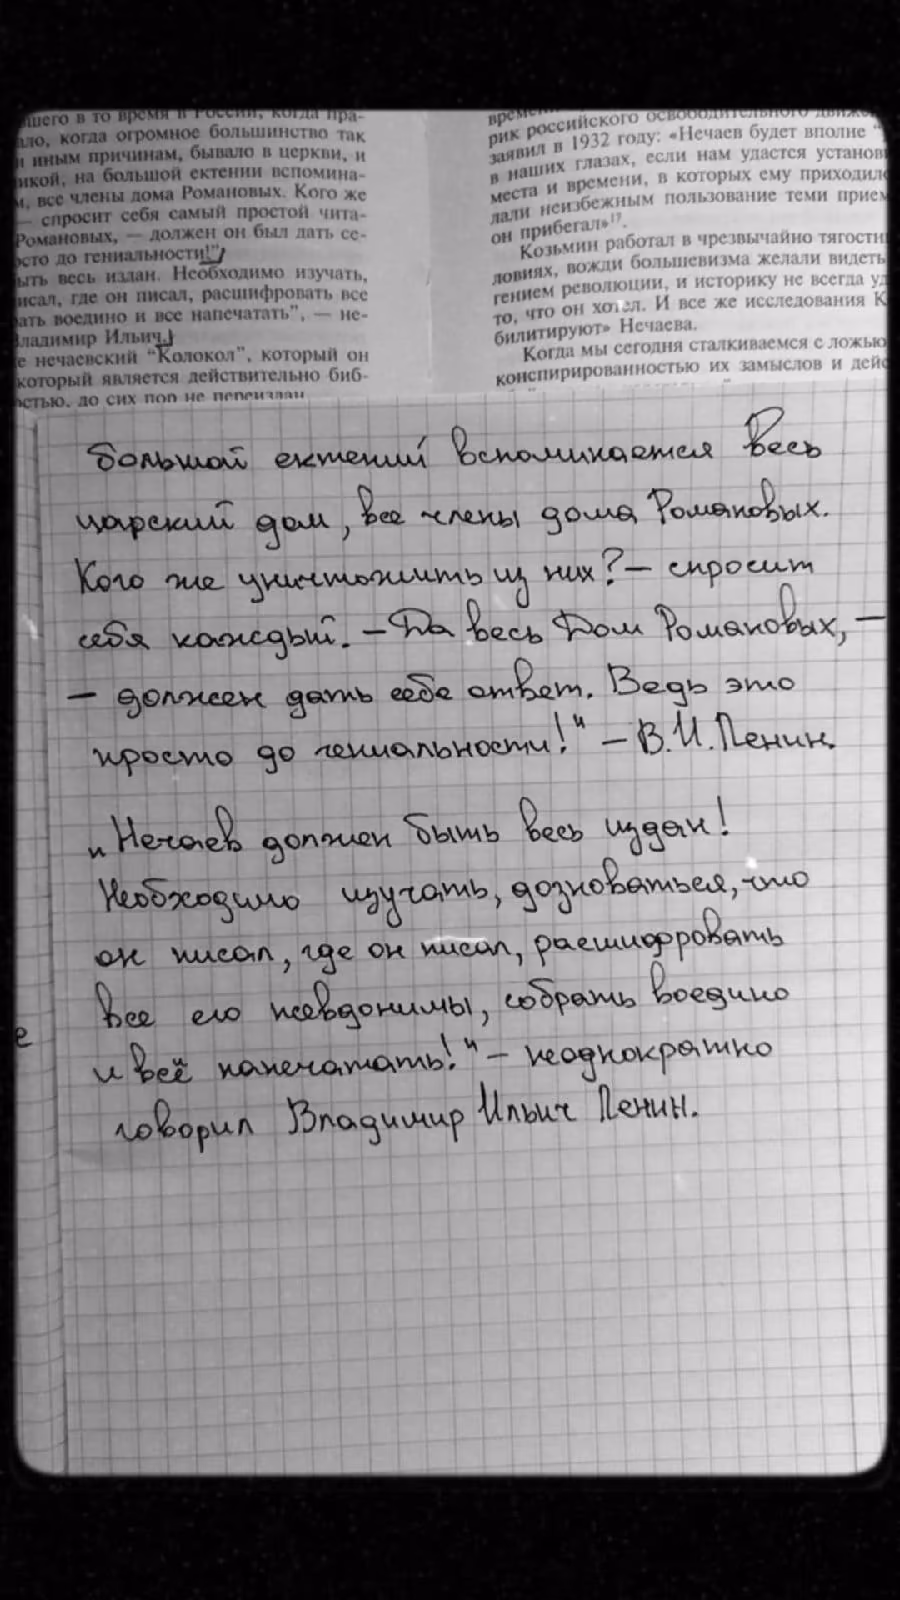 шего в то время в России, когда пра-
ало, когда огромное большинство так
и иным причинам, бывало в церкви, и
икой, на большой ектении вспомина-
, все члены дома Романовых. Кого же
— спросит себя самый простой чита-
Романовых, — должен он был дать се-
осто до гениальности!"
ыть весь издан. Необходимо изучать,
исал, где он писал, расшифровать все
ать воедино и все напечатать", — не-
Владимир Ильич.
е нечаевский "Колокол", который он
который является действительно биб-
остью, до сих пор не переиздан
рик российского освободительного
заявил в 1932 году: «Нечаев будет вполне
в наших глазах, если нам удастся установ
места и времени, в которых ему приходил
лали неизбежным пользование теми прием
он прибегал»¹⁷.
Козьмин работал в чрезвычайно тягост
ловиях, вожди большевизма желали видеть
гением революции, и историку не всегда уд
то, что он хотел. И все же исследования К
билитируют» Нечаева.
Когда мы сегодня сталкиваемся с ложью
конспирированностью их замыслов и дейс
большой ектений вспоминается весь
царский дом, все члены дома Романовых.
Кого же уничтожить из них? — спросит
себя каждый. — Да весь Дом Романовых, —
— должен дать себе ответ. Ведь это
просто до гениальности!" — В.И.Ленин.
„Нечаев должен быть весь издан!
Необходимо изучать, дозноваться, что
он писал, где он писал, расшифровать
все его псевдонимы, собрать воедино
и всё напечатать!" — неоднократно
говорил Владимир Ильич Ленин.
е